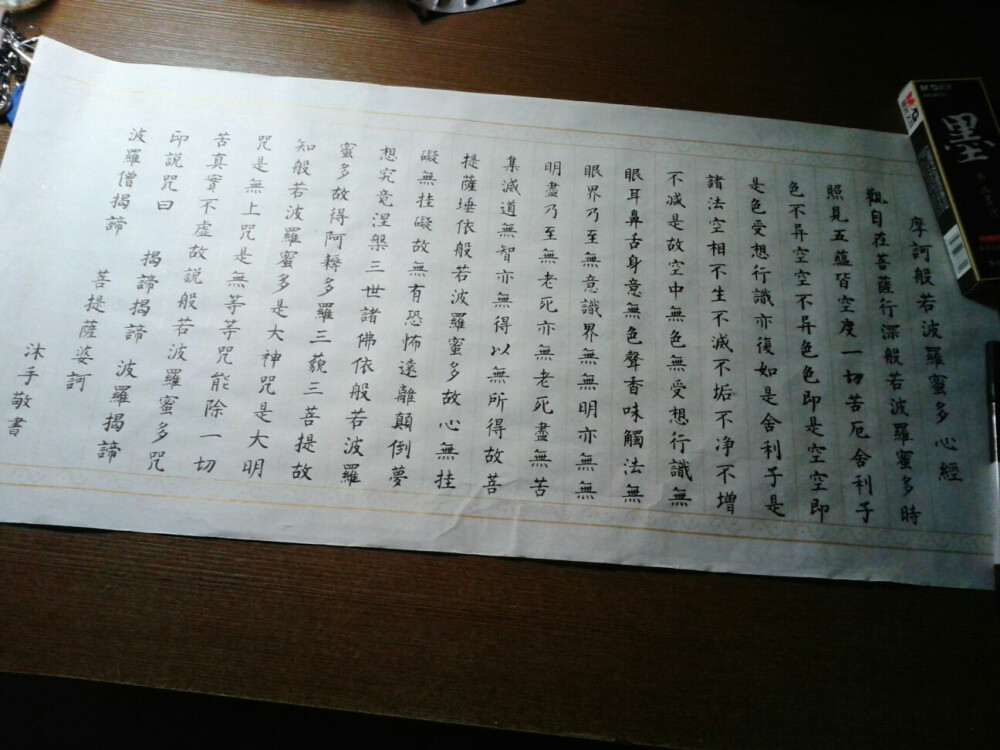 摩訶般若波羅蜜多心經
觀自在菩薩行深般若波羅蜜多時
照見五蘊皆空度一切苦厄舍利子
色不异空空不异色色即是空空即
是色受想行識亦復如是舍利子是
諸法空相不生不滅不垢不净不增
不减是故空中無色無受想行識無
眼耳鼻舌身意無色聲香味觸法無
眼界乃至無意識界無無明亦無無
明盡乃至無老死亦無老死盡無苦
集滅道無智亦無得以無所得故菩
提薩埵依般若波羅蜜多故心無挂
礙無挂礙故無有恐怖遠離顛倒夢
想究竟涅槃三世諸佛依般若波羅
蜜多故得阿耨多羅三藐三菩提故
知般若波羅蜜多是大神咒是大明
咒是無上咒是無等等咒能除一切
苦真實不虛故説般若波羅蜜多咒
印説咒曰 揭諦揭諦 波羅揭諦
波羅僧揭諦 菩提薩婆訶
沐手敬書
墨
M&G